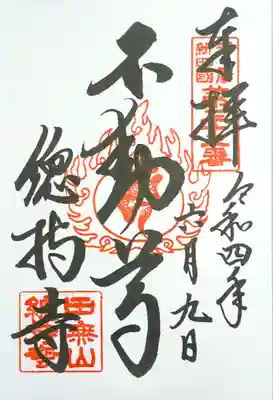 奉拝
令和四年
六月九日
不動尊
總持寺
田無山
總持寺